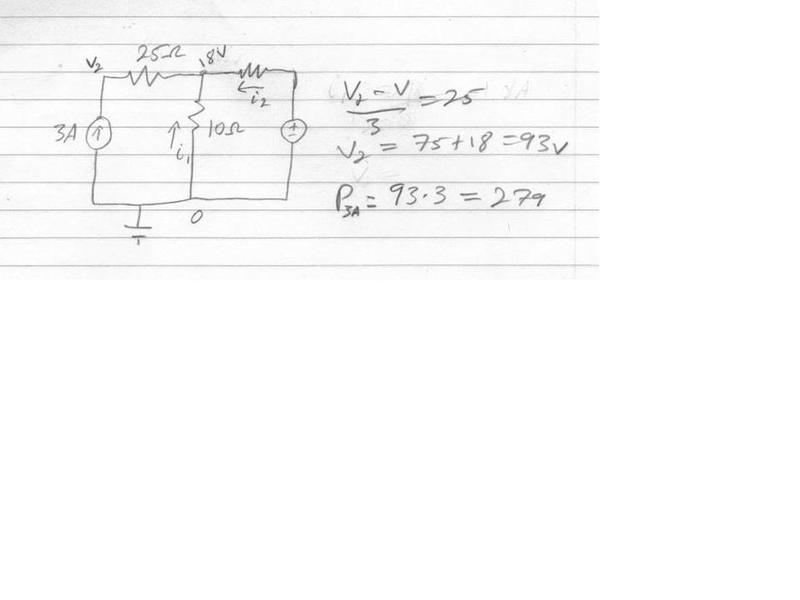 V₂ 25Ω 18V
i₂
3A i₁ 10Ω
0
V₂ - V / 3 = 25
V₂ = 75+18 = 93v
P3A = 93·3 = 279